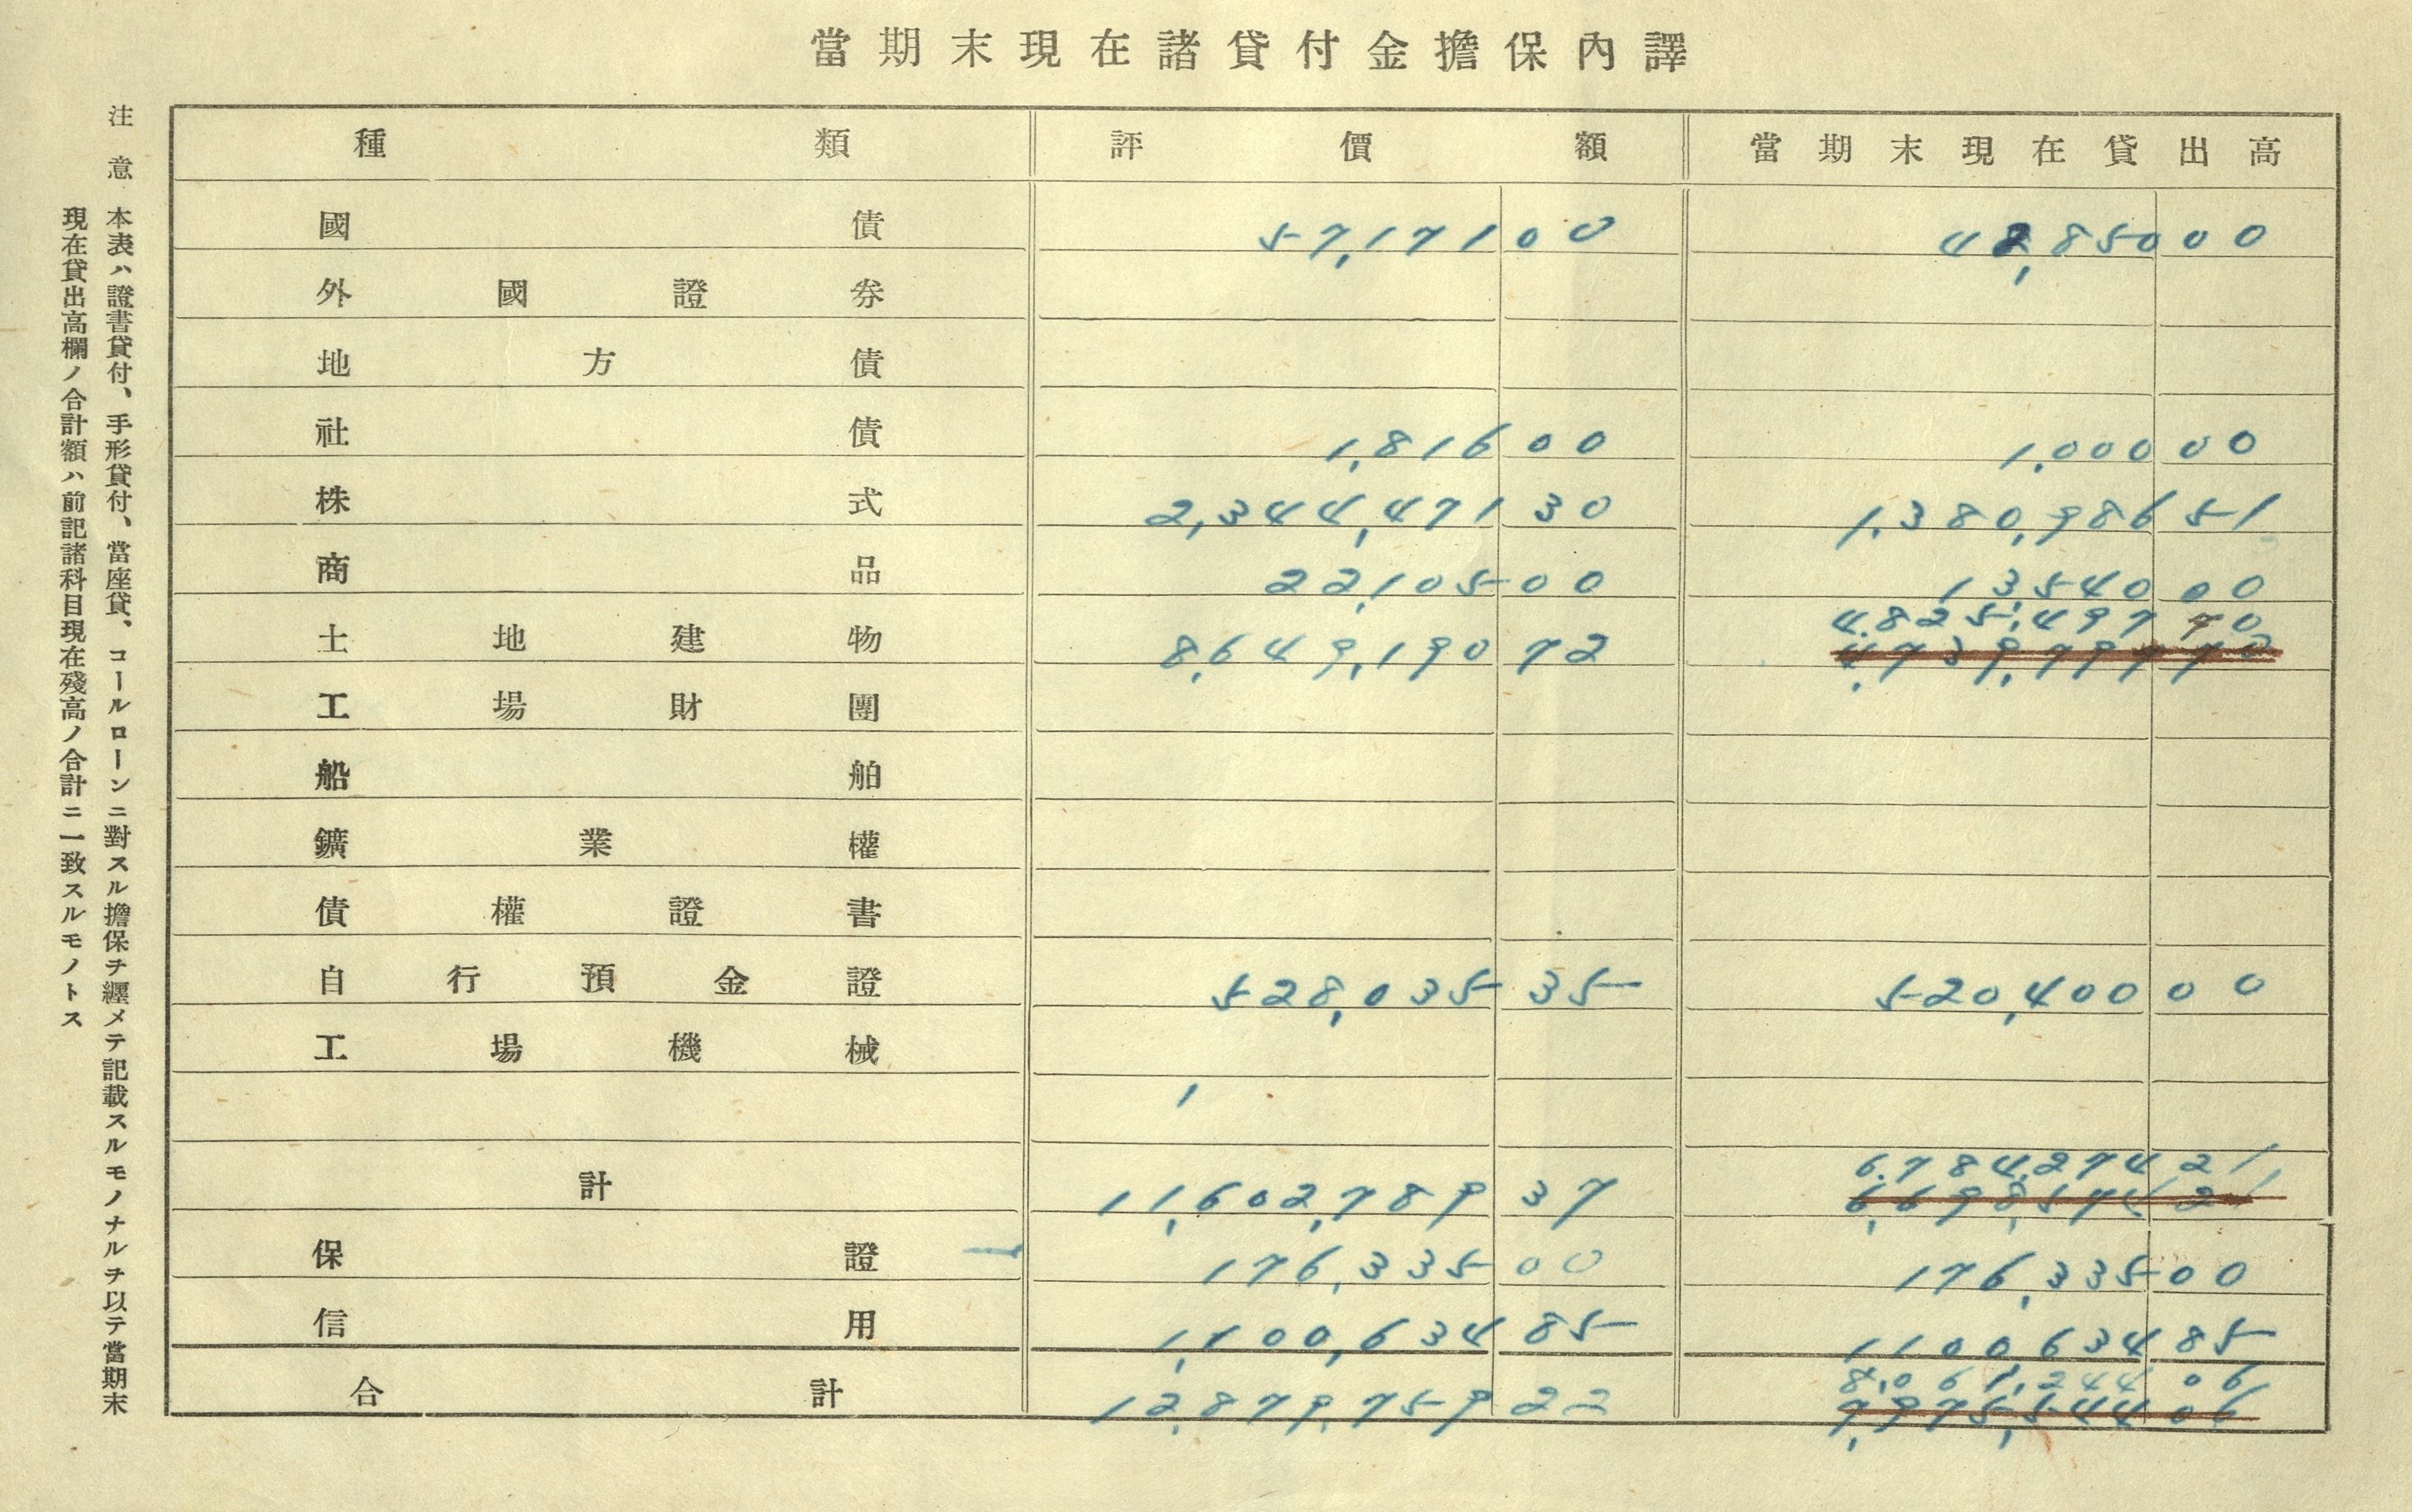 當期末現在諸貸付金擔保內譯
種類 評價額 當期末現在貸出高
國債 57,171 00 42,850 00
外國證券
地方債
社債 1,816 00 1,000 00
株式 2,344,471 30 1,380,986 51
商品 22,105 00 13,540 00
4,825,497 70
土地建物 8,649,190 72 4,739,797 70
工場財團
船舶
鑛業權
債權證書
自行預金證 528,035 35 520,400 00
工場機械
6,784,274 21
計 11,602,789 37 6,698,574 21
保證 176,335 00 176,335 00
信用 1,100,634 85 1100634 85
8,061,244 06
合計 12,879,759 22 7,975,544 06
注意 本表ハ證書貸付、手形貸付、當座貸、コールローンニ對スル擔保ヲ纒メテ記載スルモノナルヲ以テ當期末
現在貸出高欄ノ合計額ハ前記諸科目現在殘高ノ合計ニ一致スルモノトス